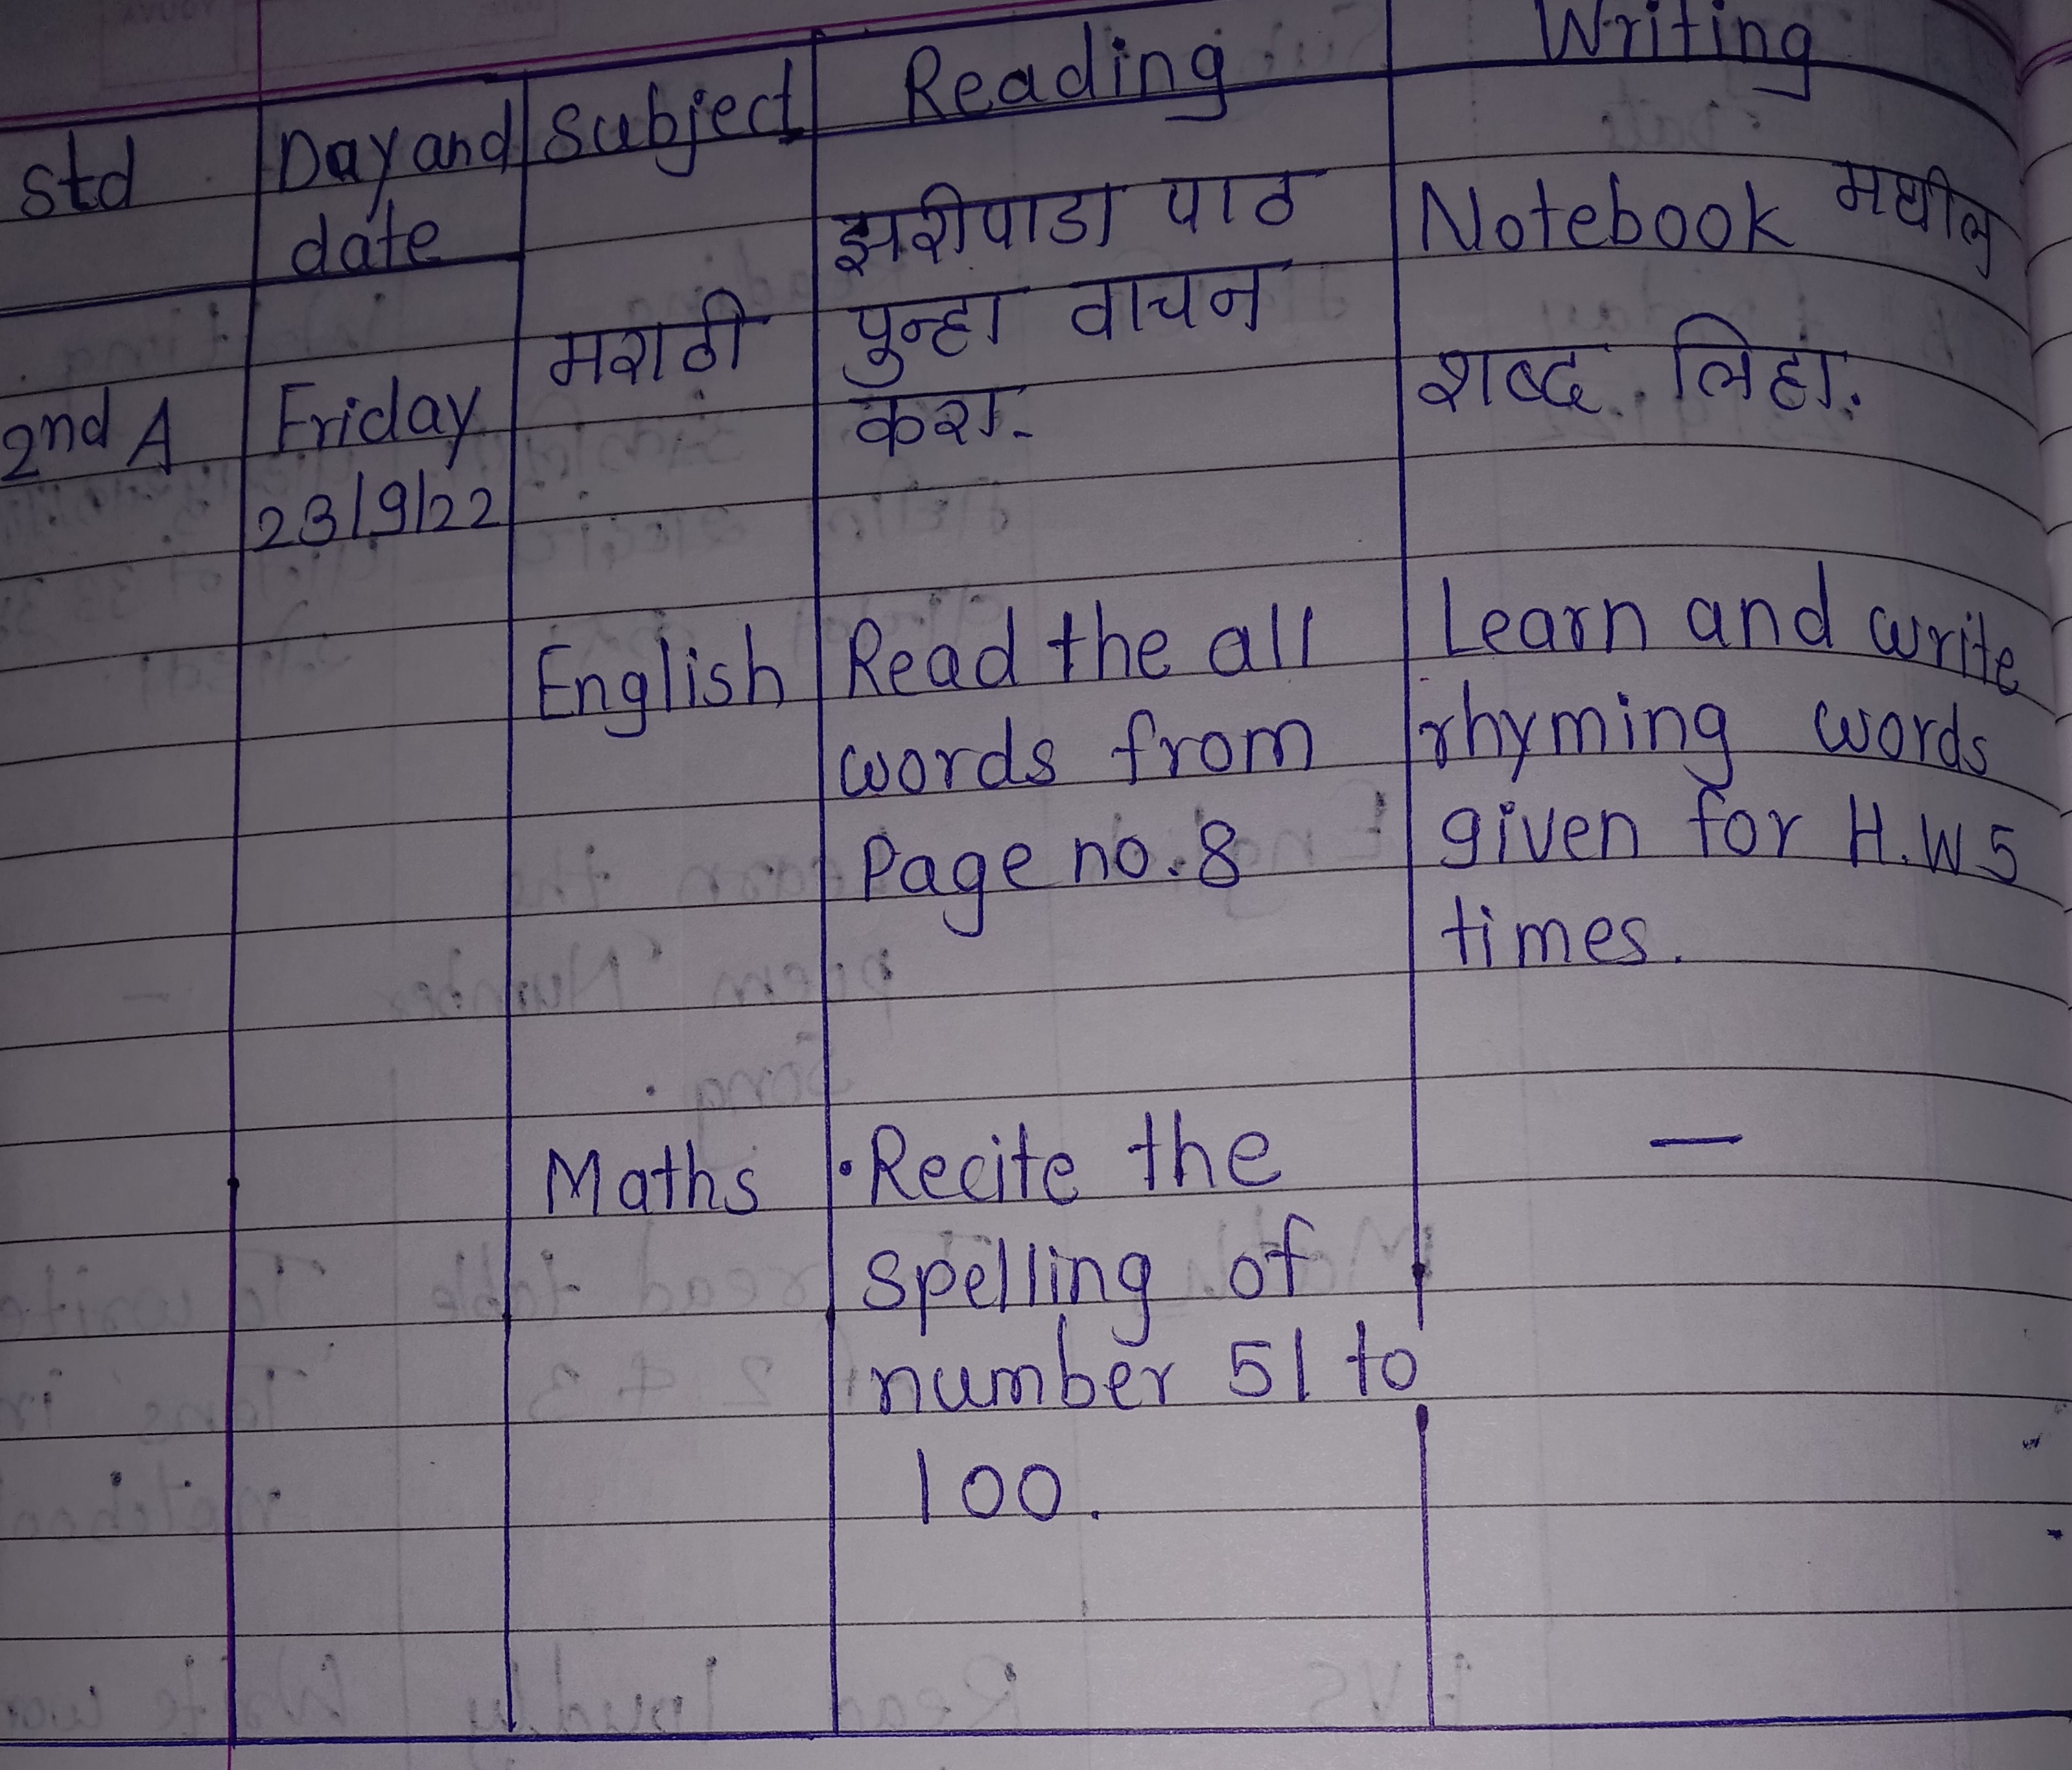 Std Day and date Subject Reading Writing
2nd A Friday 23/9/22
मराठी
झरीपाडा पाठ
पुन्हा वाचन
करा.
Notebook मधील
शब्द लिहा.
English
Read the all
words from
Page no. 8
Learn and write
rhyming words
given for H.W 5
times.
Maths
• Recite the
spelling of
number 51 to
100.
—